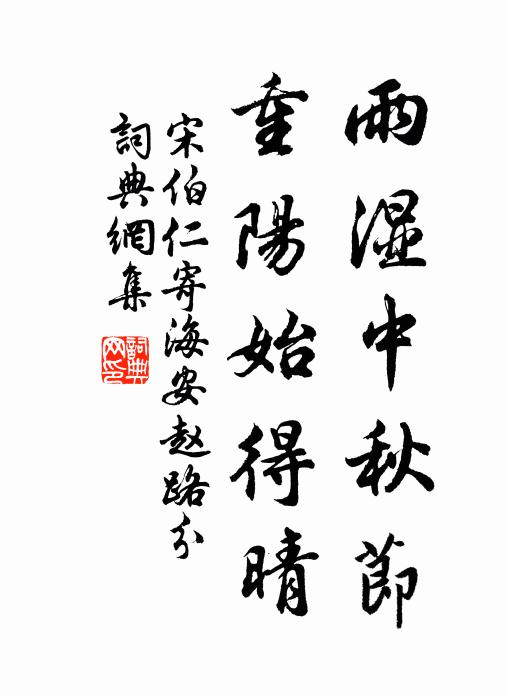 雨湿中秋節
重陽始得晴
宋伯仁寄海安赵路分
詞典網集
詞典網印